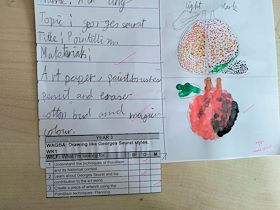 Topic : Georges seurat
Title: Pointillism
Materials:
Art paper, paintbrushes
pencil and eraser
cotton bud and magic
colour.
light dark
YEAR 3
WAGBA: Drawing like Georges Seurat styles.
WK1
WILF: What I'm looking for
1 Understand the techniques of Pointillism
and its historical context
2 Learn about Georges Seurat and his
contribution to the art world.
3 Create a piece of artwork using the
Pointillism techniques- Planning